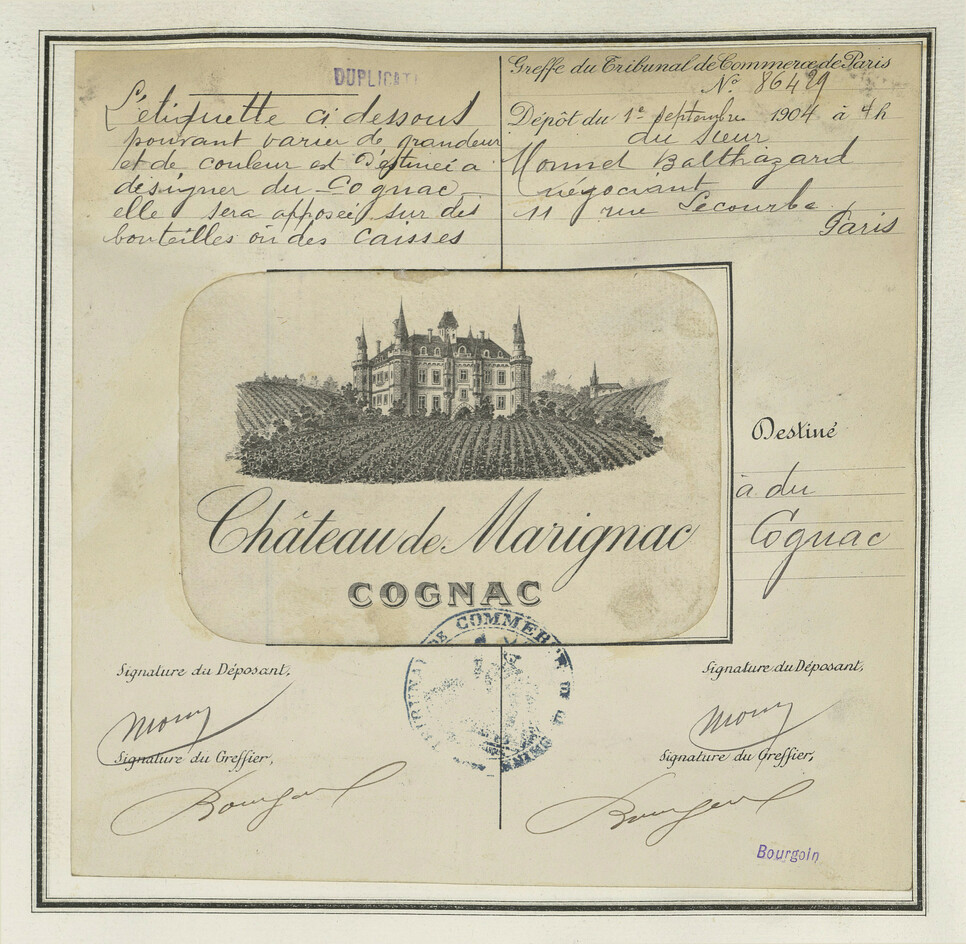 DUPLICATA
L'étiquette ci dessous
pouvant varier de grandeur
et de couleur est Destinée à
désigner du Cognac
elle sera apposée sur des
bouteilles ou des caisses
Greffe du Tribunal de Commerce de Paris
N° 86429
Dépôt du 1e septembre 1904 à 4h
du sieur
Monnet Balthazard
négociant
11 rue Lecourbe
Paris
Château de Marignac
COGNAC
Destiné
à du
Cognac
TRIBUNAL DE COMMERCE DE LA
SEINE
Signature du Déposant,
Signature du Greffier,
Signature du Déposant,
Signature du Greffier,
Bourgoin